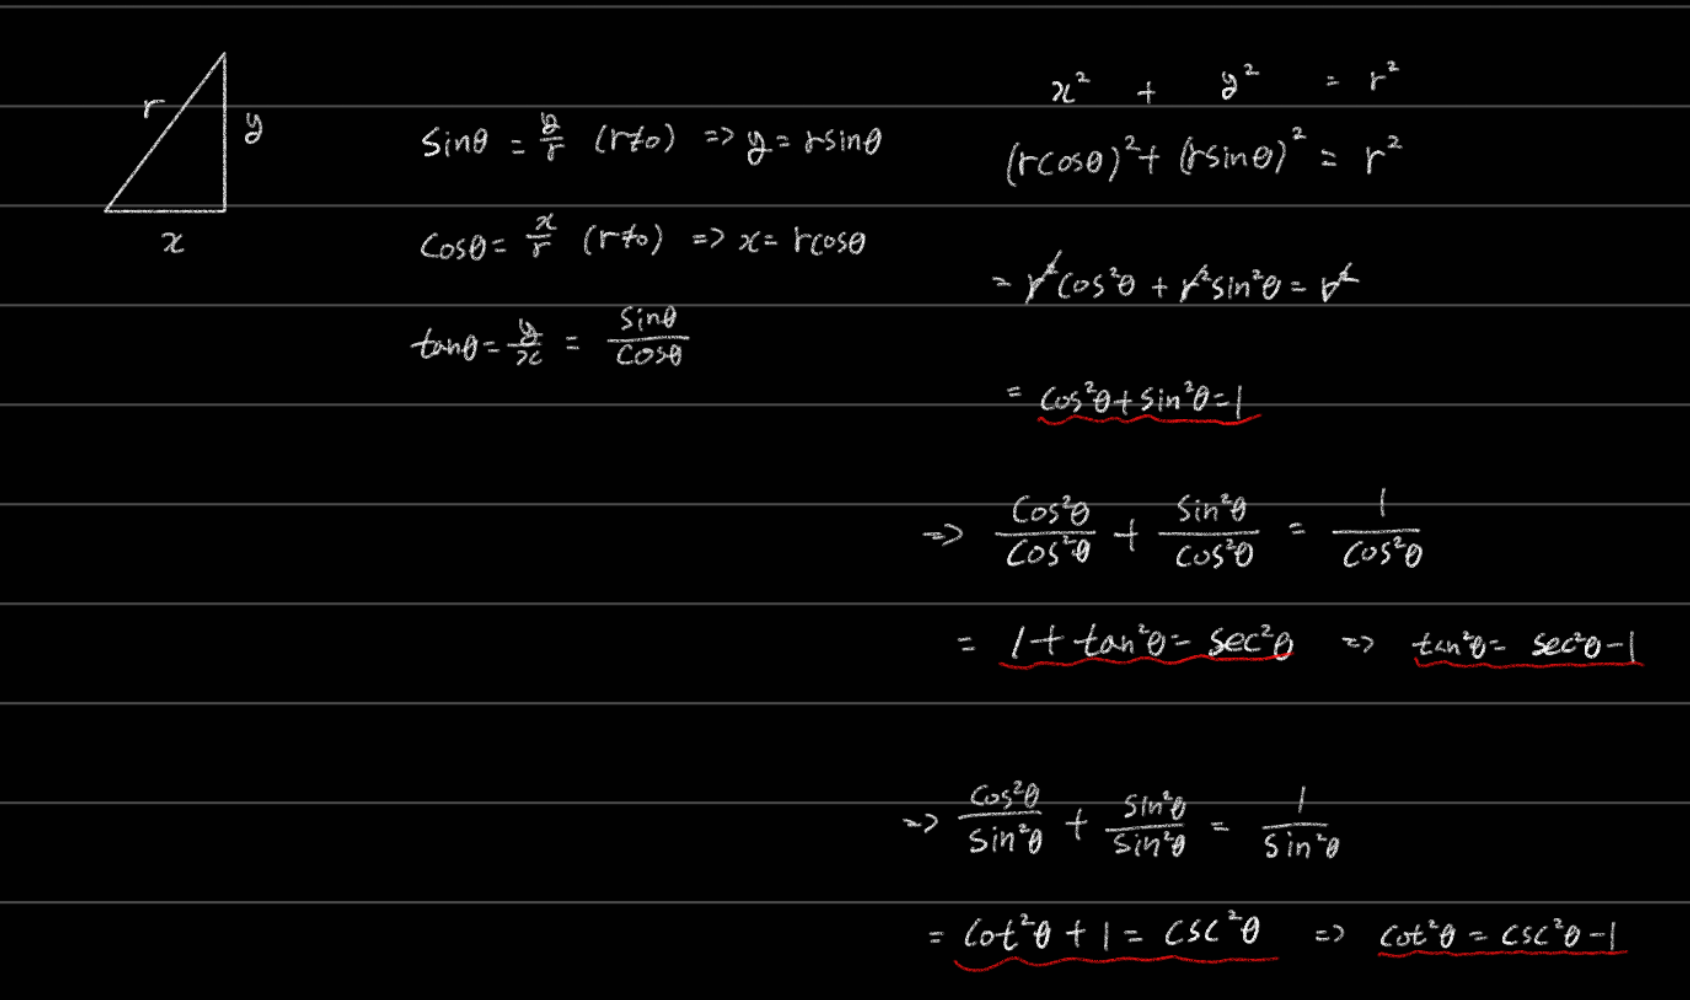 r
y
x
sinθ = y/r (r≠0) => y = rsinθ
cosθ = x/r (r≠0) => x = rcosθ
tanθ = y/x = sinθ/cosθ
x² + y² = r²
(rcosθ)² + (rsinθ)² = r²
= r²cos²θ + r²sin²θ = r²
= cos²θ + sin²θ = 1
=> cos²θ/cos²θ + sin²θ/cos²θ = 1/cos²θ
= 1 + tan²θ = sec²θ => tan²θ = sec²θ - 1
=> cos²θ/sin²θ + sin²θ/sin²θ = 1/sin²θ
= cot²θ + 1 = csc²θ => cot²θ = csc²θ - 1